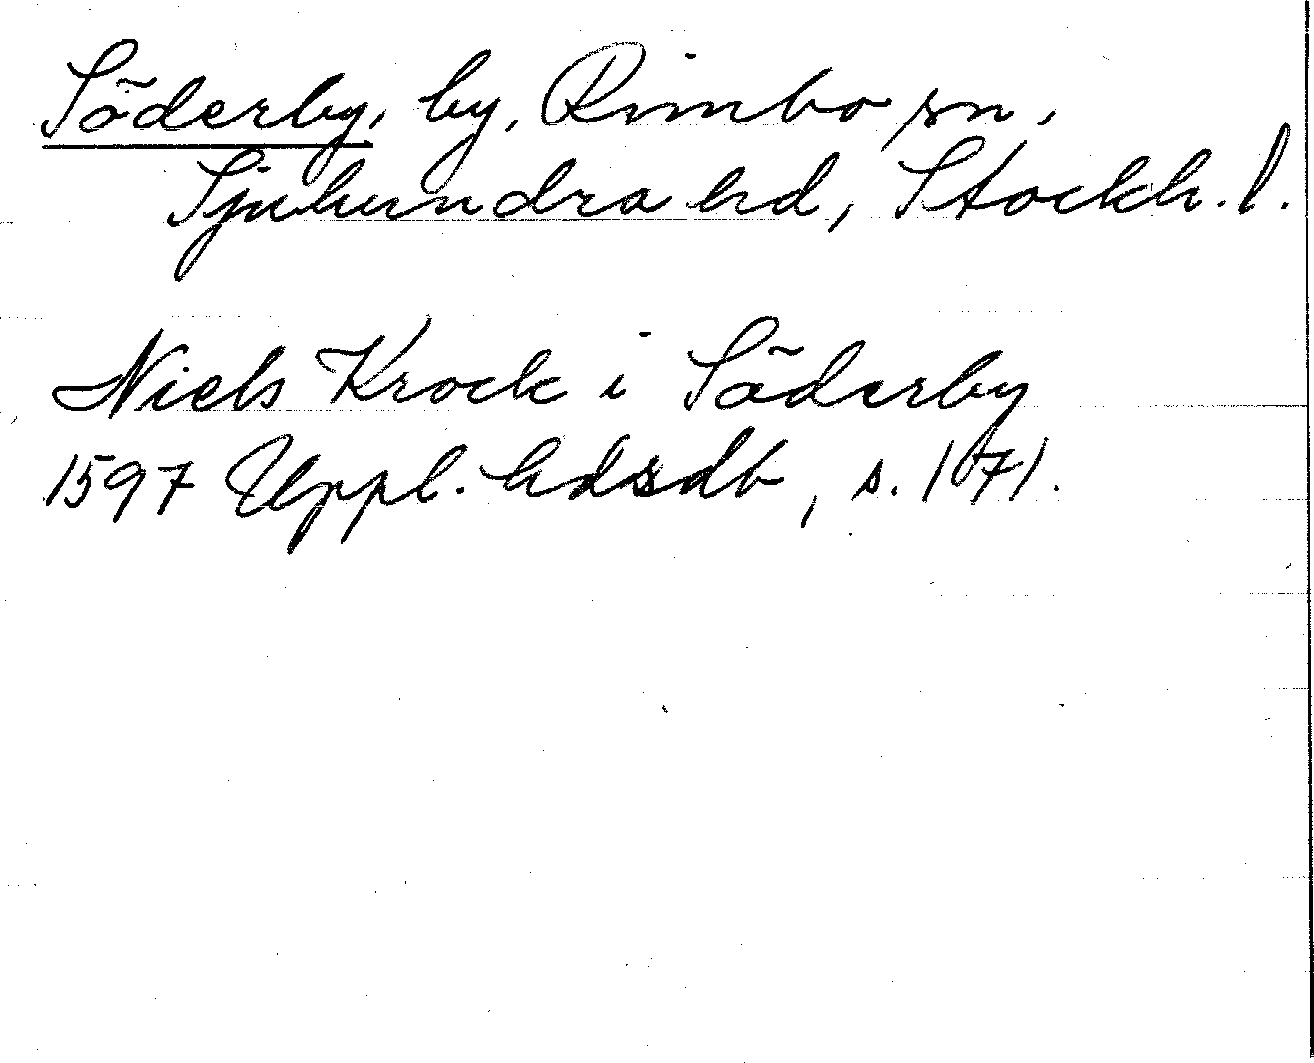 Söderby, by, Rimbo sn,
Sjuhundra hd, Stockh. l.
Niels Krock i Söderby
1597 Uppl. hdsdb, s. 171.